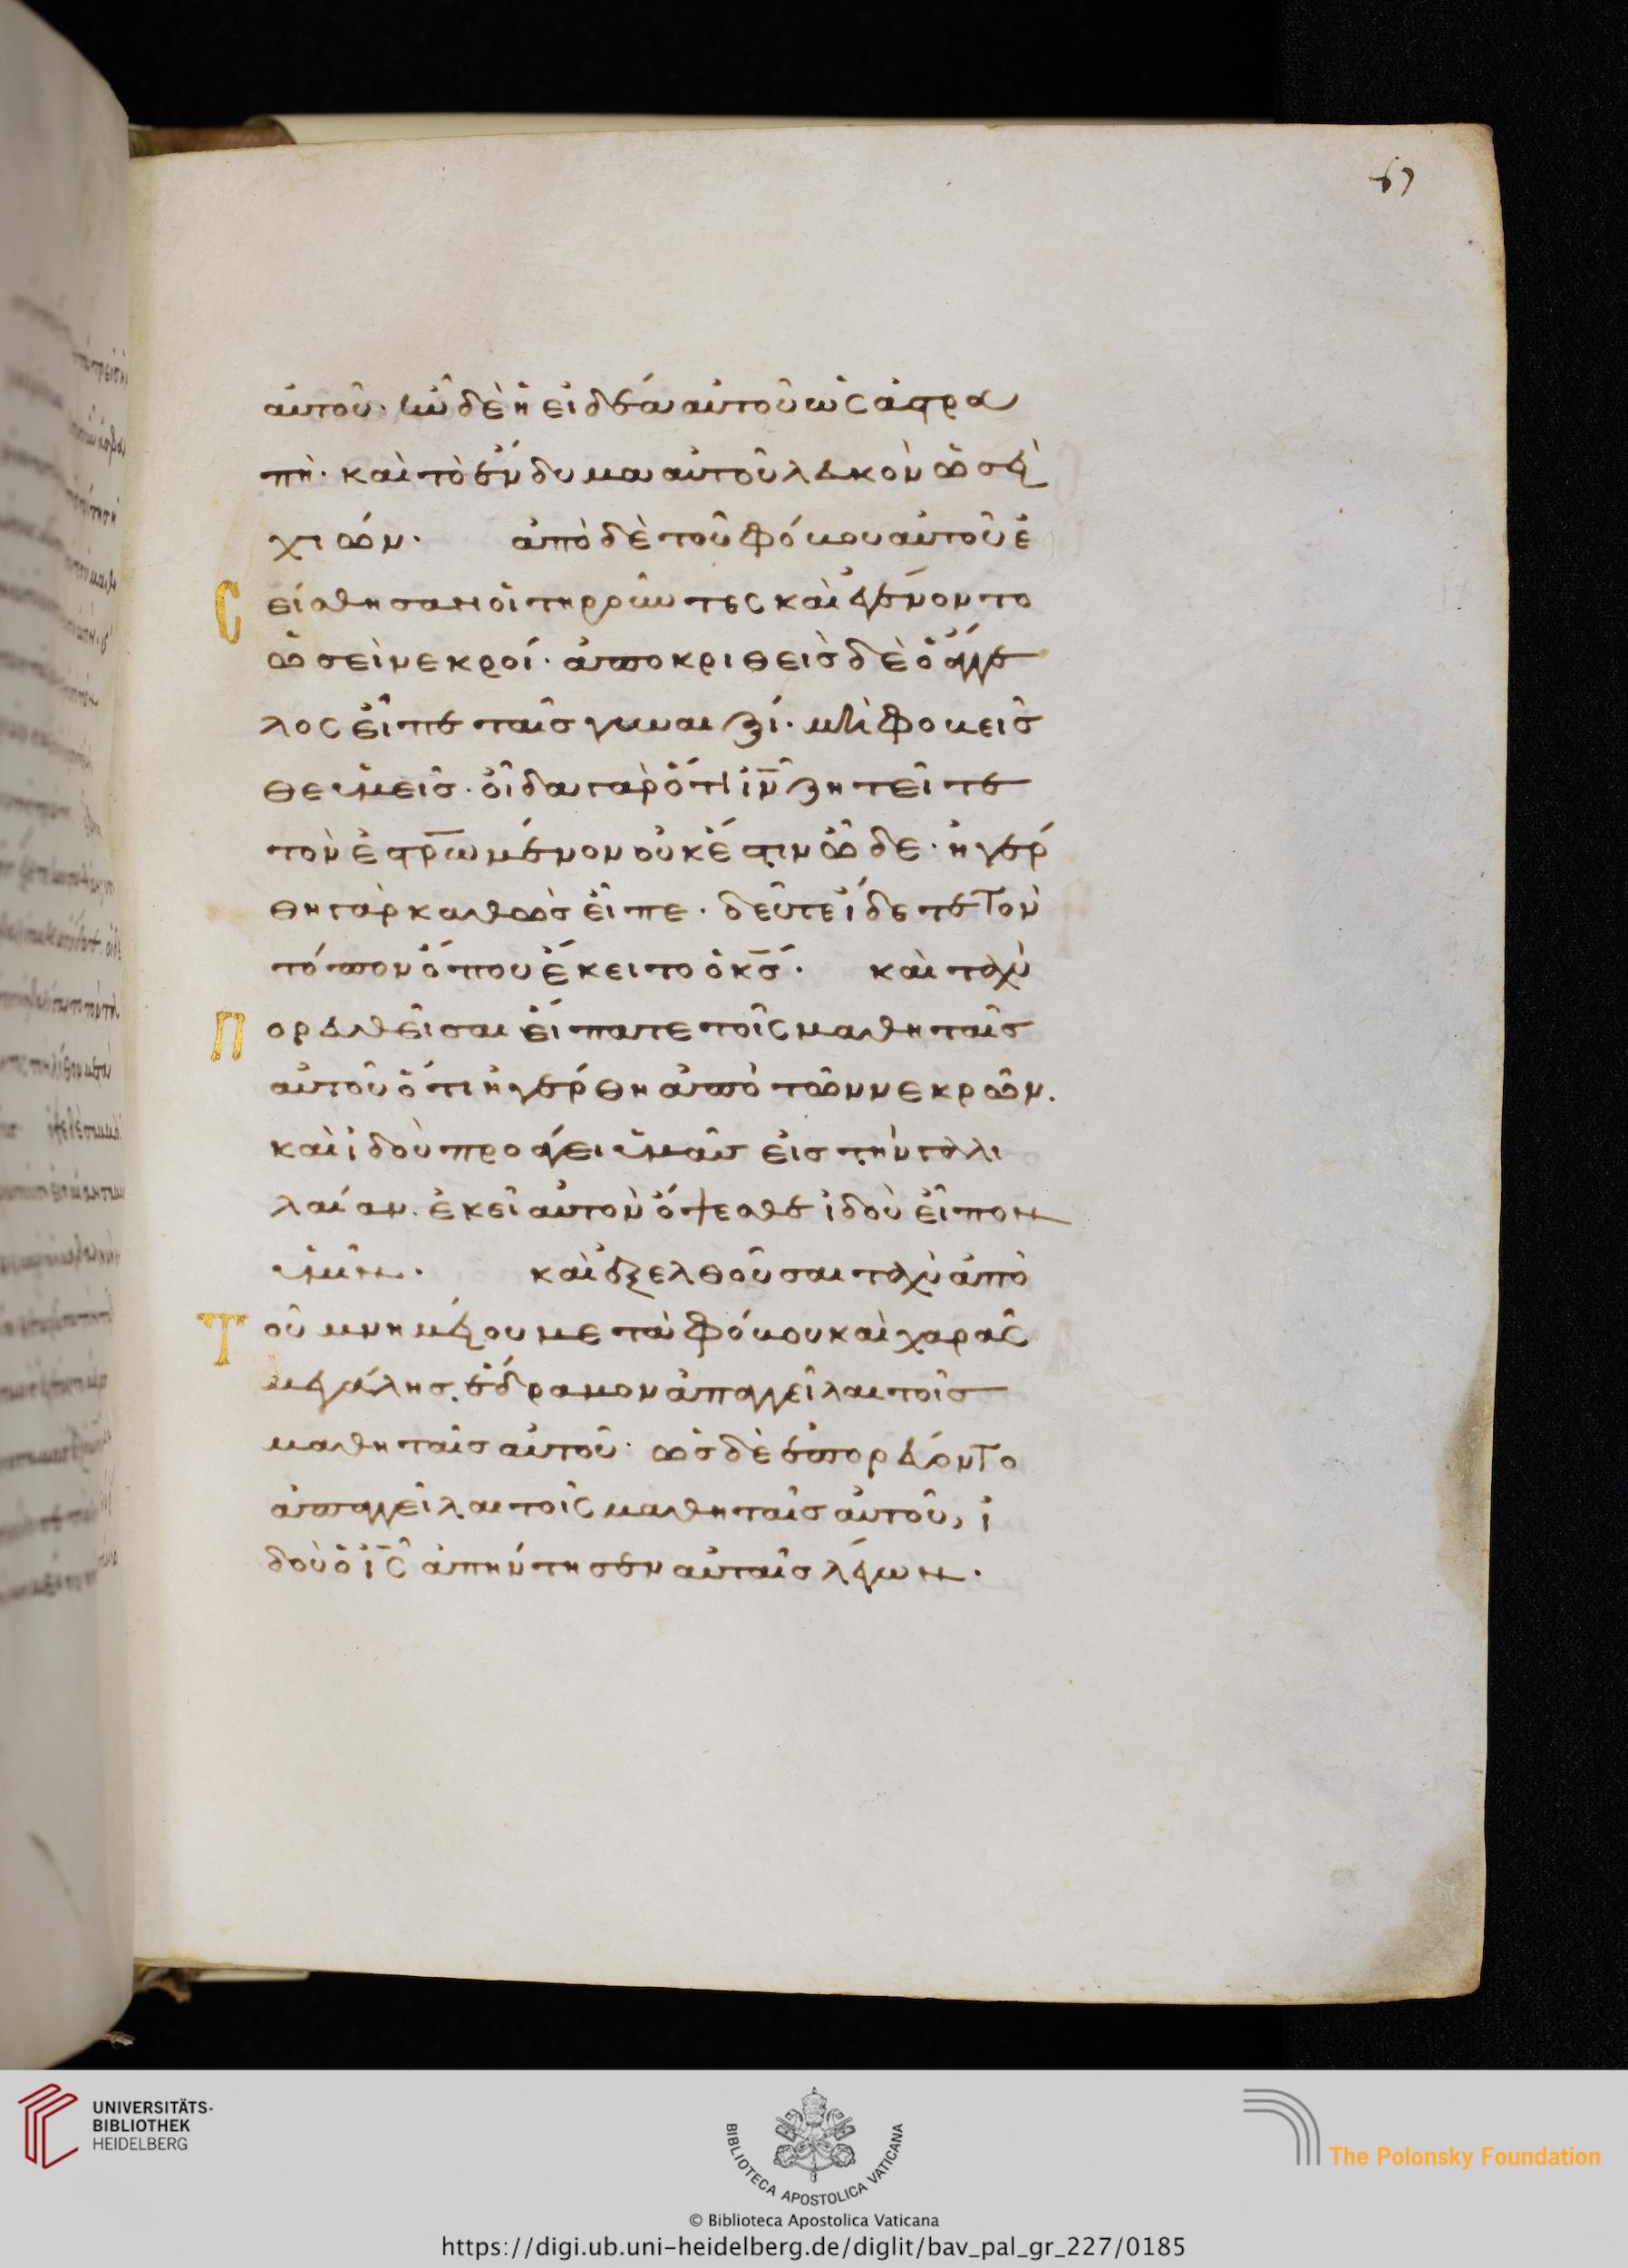 67
αὐτοῦ· ἦν δὲ ἡ εἰδέα αὐτοῦ ὡς ἀστρα
πὴ· καὶ τὸ ἔνδυμα αὐτοῦ λευκὸν ὡσεὶ
χιών· ἀπὸ δὲ τοῦ φόβου αὐτοῦ ἐ
Σ είσθησαν οἱ τηροῦντες καὶ ἐγένοντο
ὡσεὶ νεκροί· ἀποκριθεὶς δὲ ὁ ἄγγε
λος εἶπε ταῖς γυναιξί· μὴ φοβεῖσ
θε ὑμεῖς· οἶδα γὰρ ὅτι ἰν̅ ζητεῖτε
τὸν ἐστρ̅ωμένον οὐκ ἔστιν ὧδε· ἠγέρ
θη γὰρ καθὼς εἶπε· δεῦτε ἴδετε τὸν
τόπον ὅπου ἔκειτο ὁ κς̅· καὶ ταχὺ
Π ορευθεῖσαι εἴπατε τοῖς μαθηταῖς
αὐτοῦ ὅτι ἠγέρθη ἀπὸ τῶν νεκρῶν.
καὶ ἰδοὺ προάγει ὑμᾶς εἰς τὴν γαλι
λαίαν. ἐκεῖ αὐτὸν ὄψεσθε ἰδοὺ εἶπον
ὑμῖν· καὶ ἐξελθοῦσαι ταχὺ ἀπὸ
Τ οῦ μνημείου μετὰ φόβου καὶ χαρᾶς
μεγάλης. ἔδραμον ἀπαγγεῖλαι τοῖς
μαθηταῖς αὐτοῦ· ὡς δὲ ἐπορεύοντο
ἀπαγγεῖλαι τοῖς μαθηταῖς αὐτοῦ, ἰ
δοὺ ὁ ἰς̅ ἀπήντησεν αὐταῖς λέγων.
UNIVERSITÄTS-
BIBLIOTHEK
HEIDELBERG
BIBLIOTECA APOSTOLICA VATICANA
The Polonsky Foundation
© Biblioteca Apostolica Vaticana
https://digi.ub.uni-heidelberg.de/diglit/bav_pal_gr_227/0185